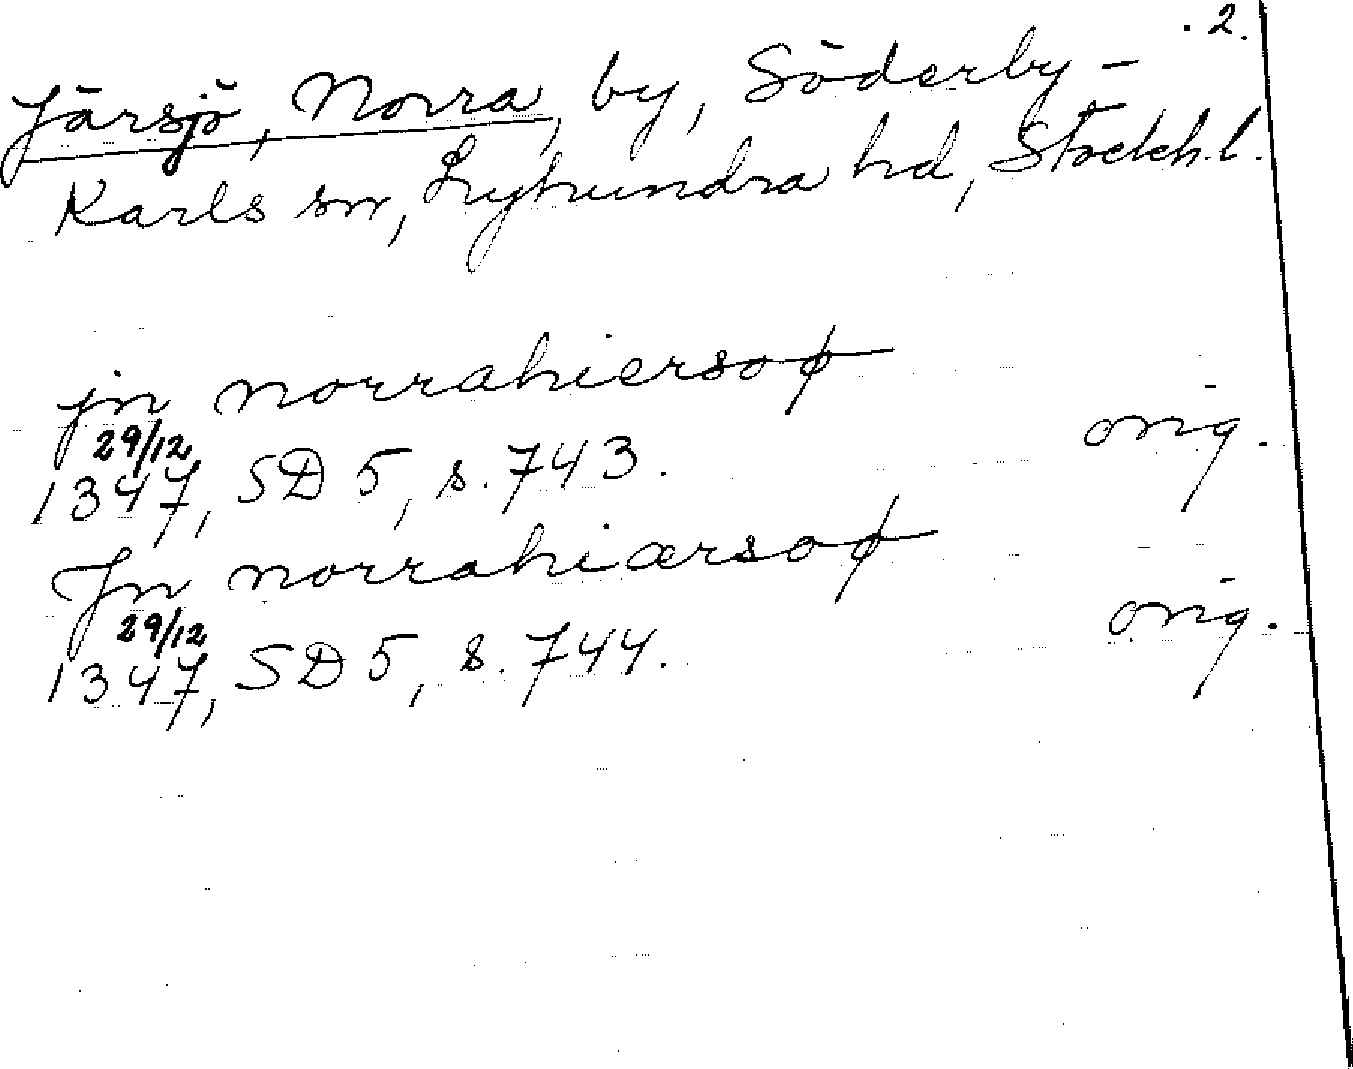 2.
Järsjö, Norra, by, Söderby-
Karls sn, Lyhundra hd, Stockh.l.
jn norrahiersoø
29/12
1347, SD 5, s. 743. orig.
Jn norrahiærsoø
29/12
1347, SD 5, s. 744. orig.